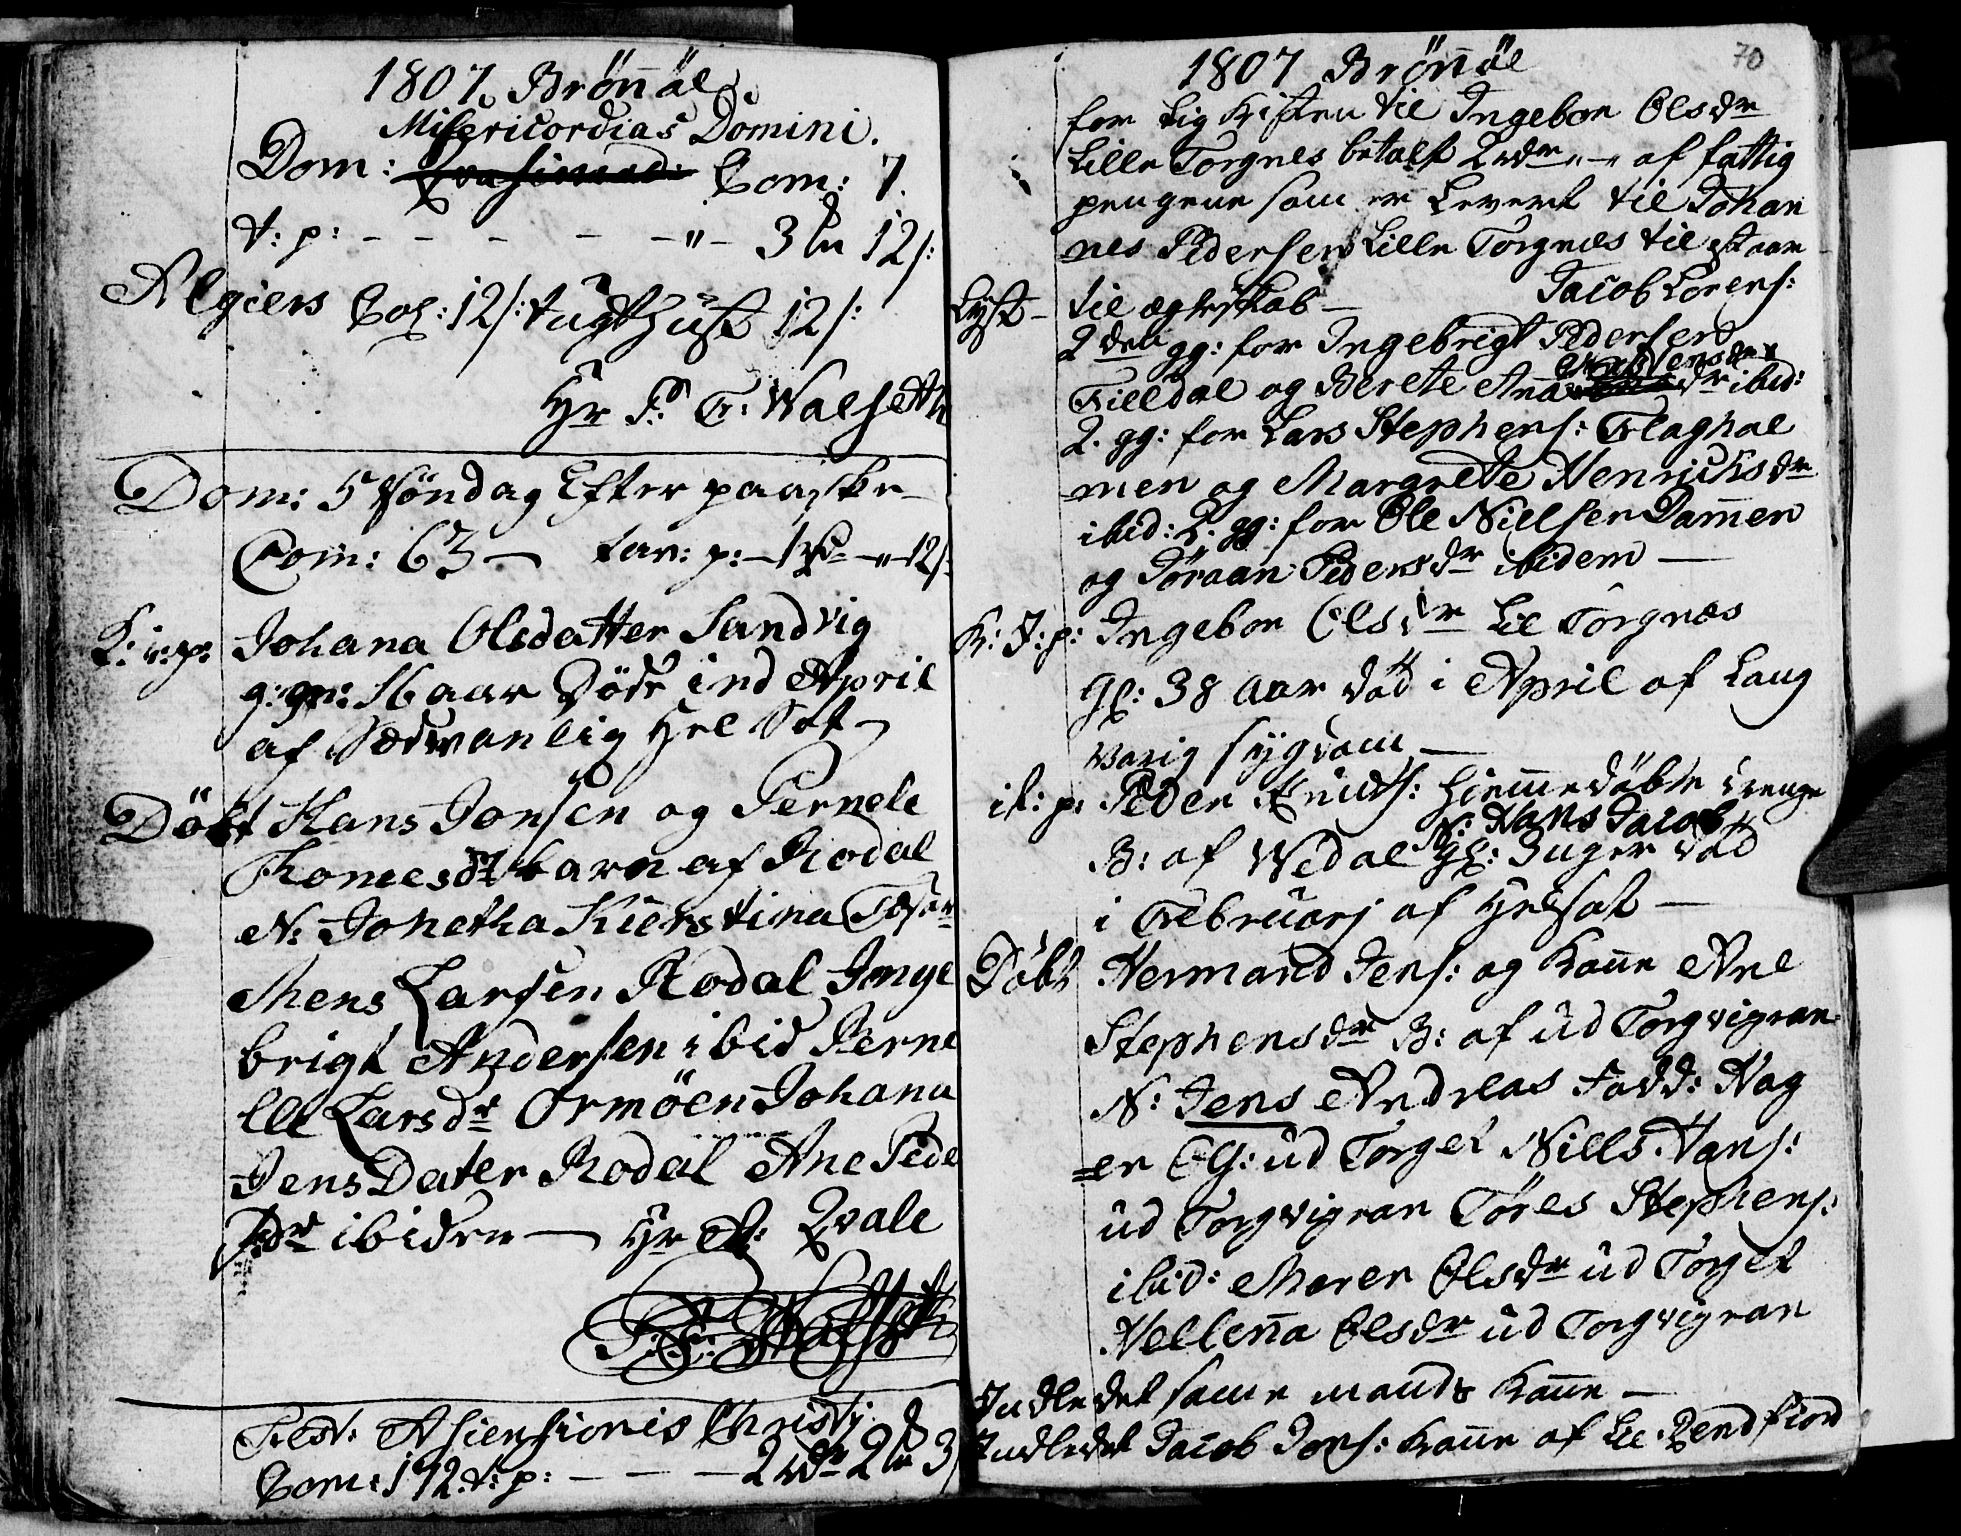 1807. Brönöe
Misericordias Domini.
Dom: Com: 7.
t: p: - - - - - " - 3 12 s:
Algiers Col: 12 s: tugthuset 12 s:
Hr P. F. Walseth
Dom: 5 Söndag Efter paaske
Com: 63 - tav: p: - 1 - " - 12 s:
K: i: p: Johana Olsdatter Sandvig
g: 16 aar Döde ind April
af Sædvanlig Hel Sot
Döbt Hans Jonsen og Pernele
Tomesdr barn af Rodal
N: Jonetha Kierstina
Mens Larsen Rodal Inge
brigt Andersen ibid Perne
lle Larsdr Ormöen Johana
Jens Dater Rodal Ane Pede
dr ibidem — Hr A: Qvale
P. F. Walseth
Fest: Asiensionis Christi
Com: 172. t: p: - - - 2 2 3
1807 Brönöe 70
for Lig Kisten til Ingebor Olsdr
Lille Torgnes betalt 2 rdr " - " af fattig
pengene som er Levert til Johan
nes Pedersen Lille Torgnes til
Jacob Lorens:
Lyst - til ægteskab -
2den gg: for Ingebrigt Pedersen
Madsensdr
Tilldal og Berete Ana dr ibid:
2. gg: for Lars Stephens: Tilaghol
men og Margrete Henrichsdr
ibid: 2. gg: for Ole Nielsen Dammen
og Jöraan Pedersdr ibidem —
K: J: p: Ingebor Olsdr Lle Torgnes
gl: 38 aar död i April af Lang
varig sygdom —
it: p: Peder Knuds: hiemmedöbte drenge
N: Hans Jacob
B: af Wedal gl: 3 uger död
i Februarj af Helsot —
Döbt Hermand Jens: og Kone Ane
Stephensdr B: af ud Torgvigran
N: Jens Andreas Fadd: Hag
en Ol: ud Torget Nills Hans:
ud Torgvigran Töres Stephens:
ibid: Maren Olsdr ud Torget
Hellena Olsdr ud Torgvigran
Indledet samme mands Kone —
Indledet Jacob Jons: Kone af Lle: Rendfiord